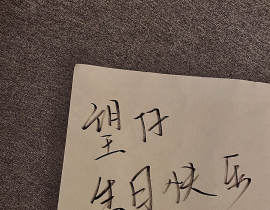 望仔
生日快乐